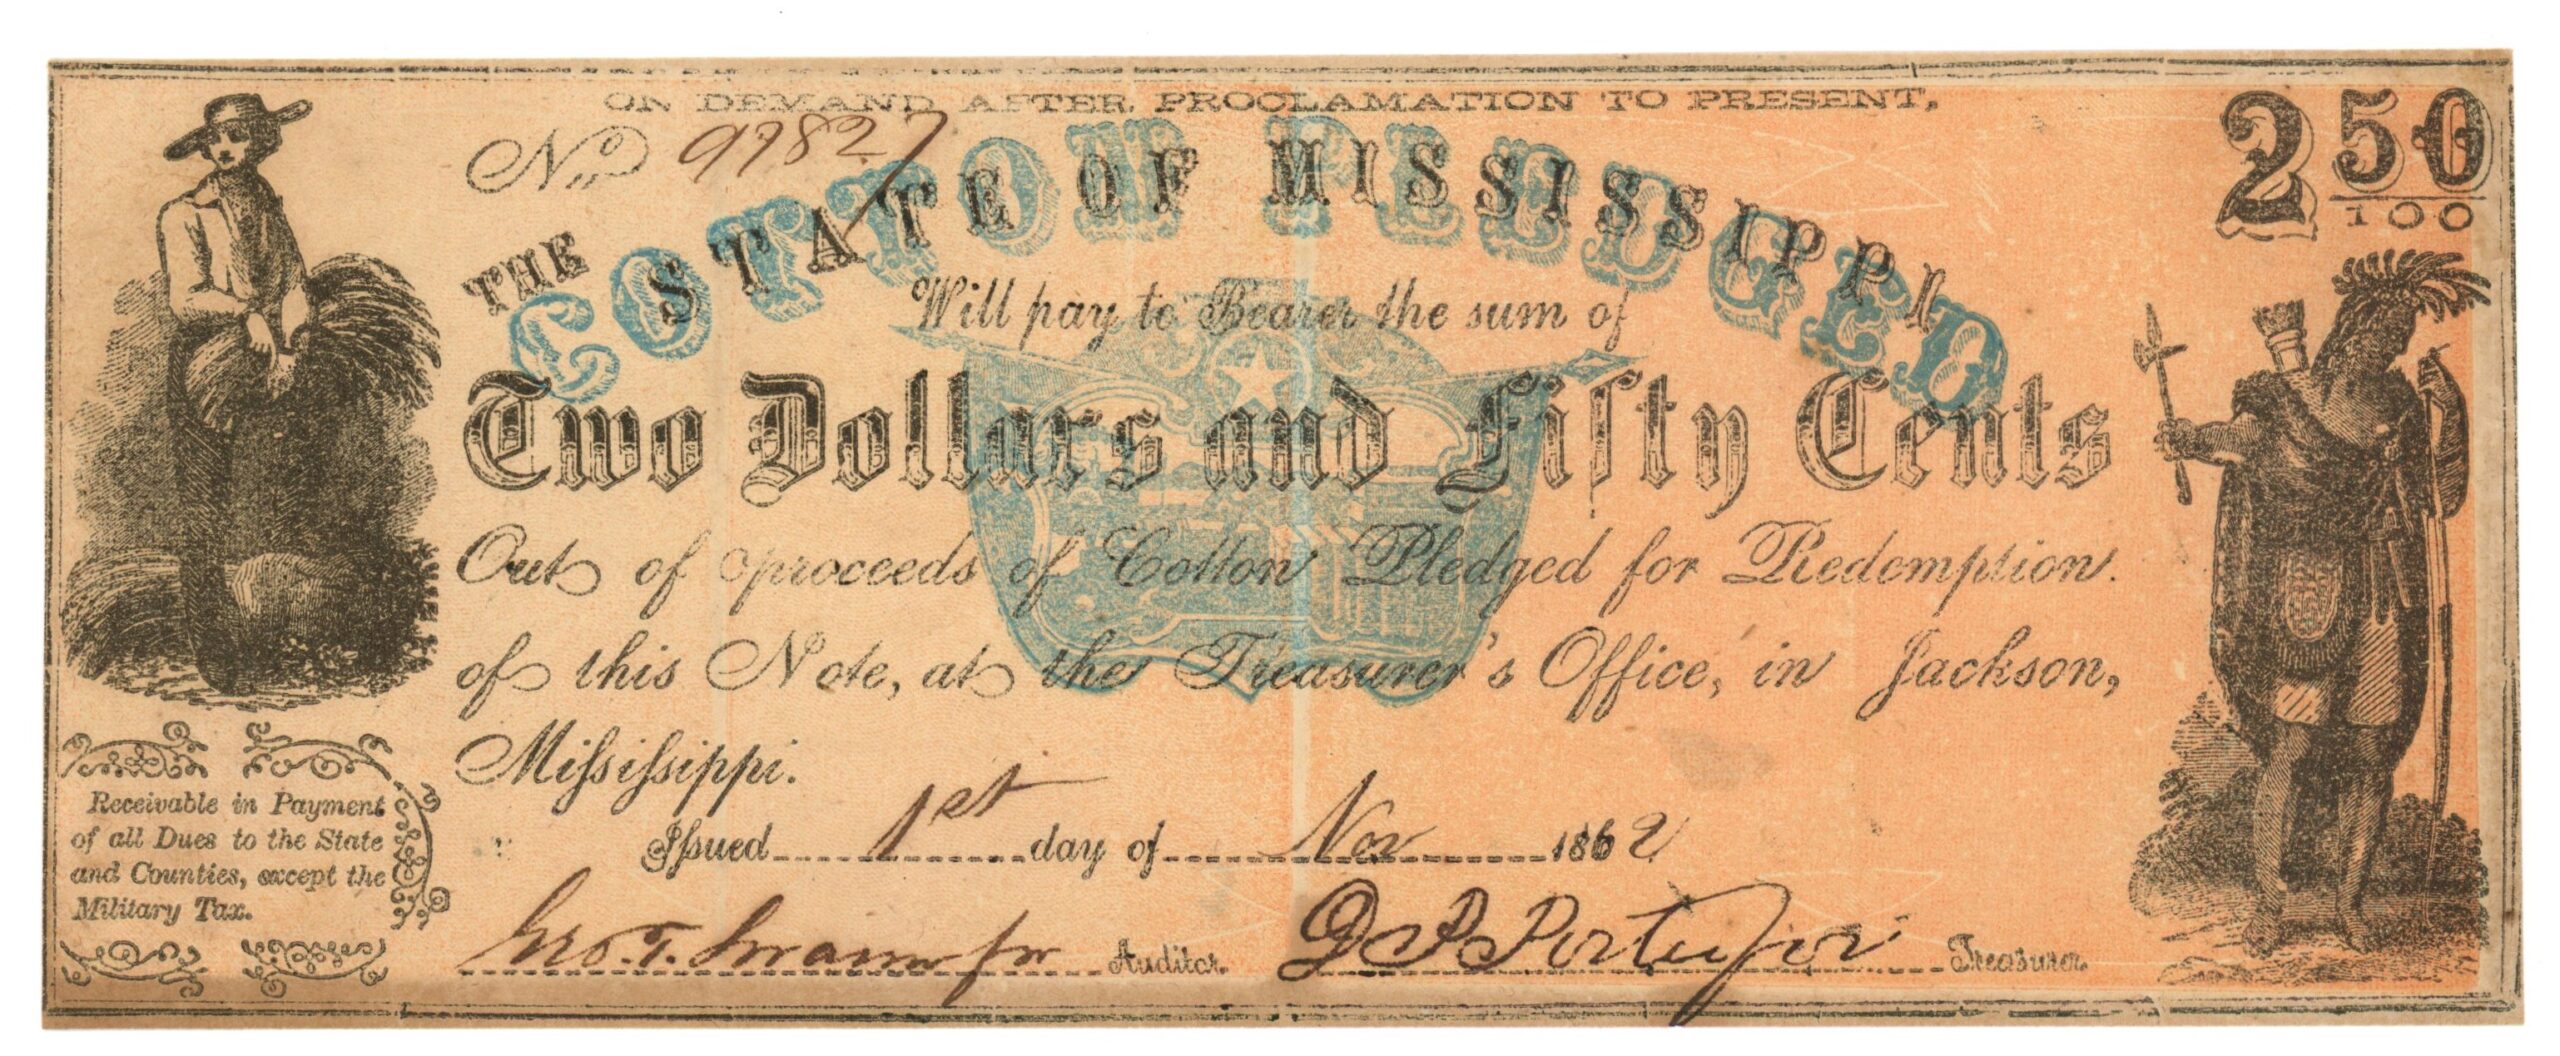 ON DEMAND AFTER PROCLAMATION TO PRESENT,
No 97827
2 50/100
THE STATE OF MISSISSIPPI
COTTON PLEDGED
Will pay to Bearer the sum of
Two Dollars and Fifty Cents
Out of proceeds of Cotton Pledged for Redemption.
of this Note, at the Treasurer's Office, in Jackson,
Miſsiſsippi.
Iſsued 1st day of Nov 1862
Receivable in Payment
of all Dues to the State
and Counties, except the
Military Tax.
Geo. T. Swann Auditor.
Porter for Treasurer.